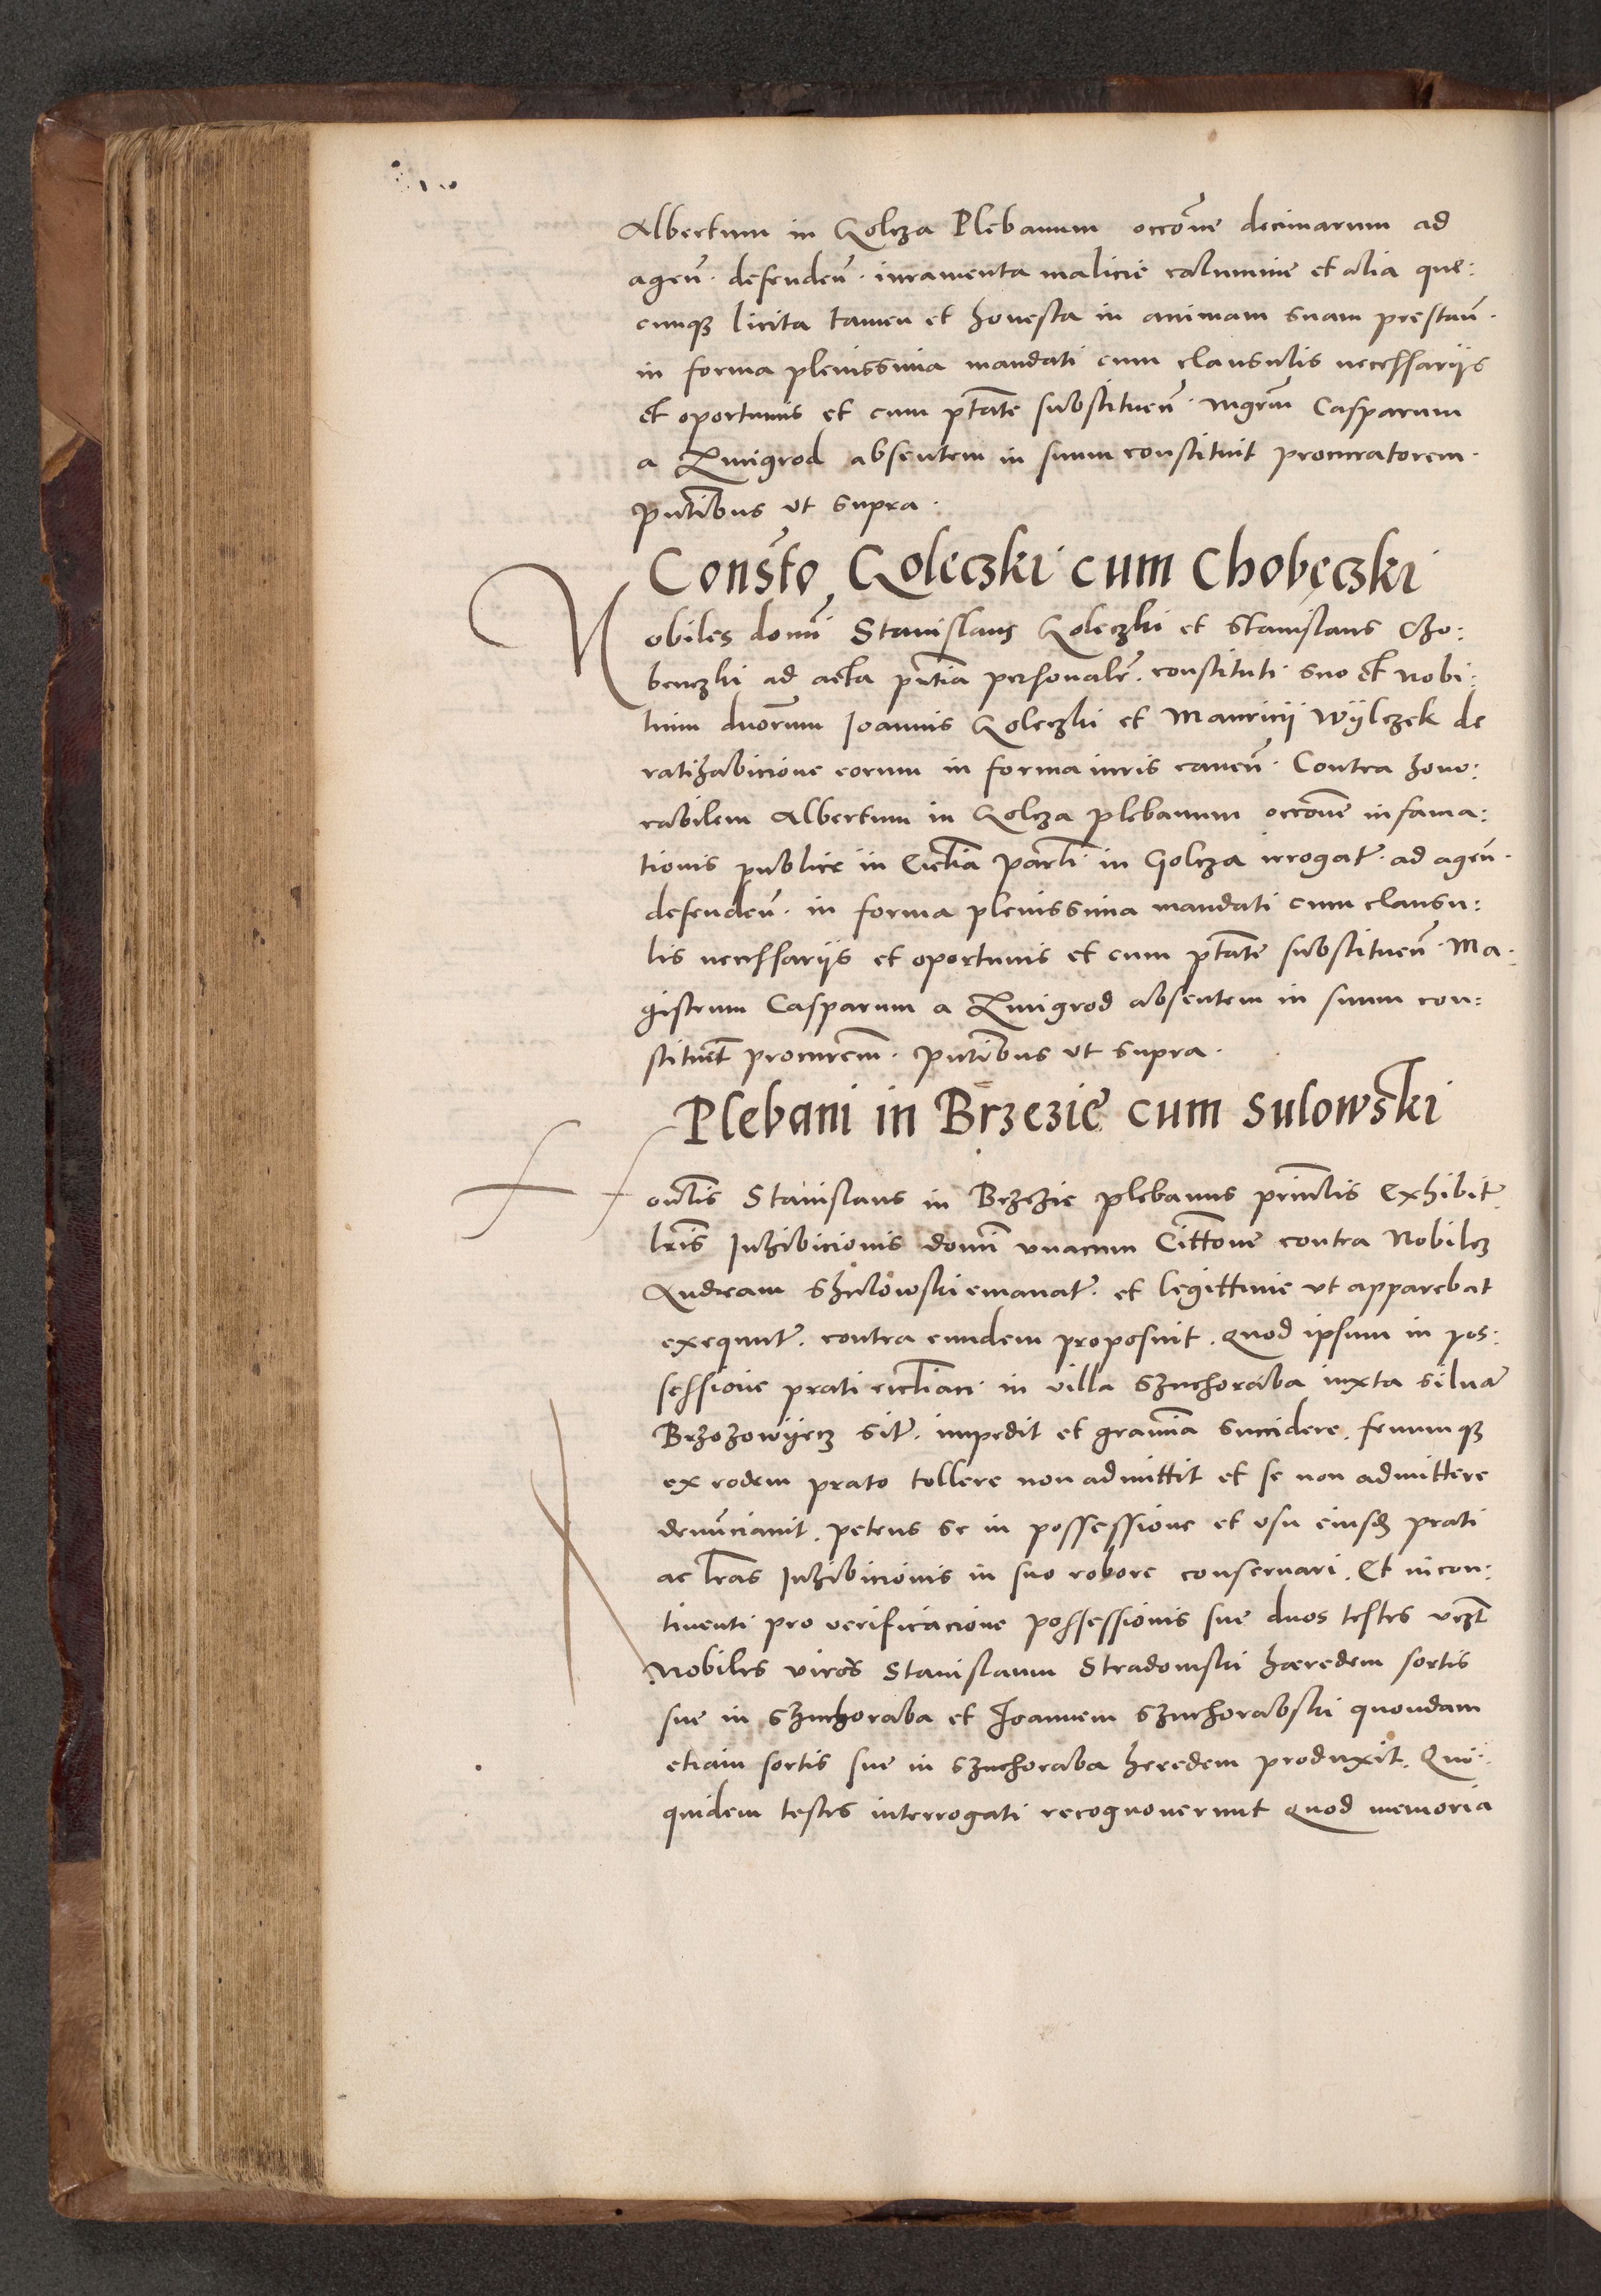 Albertum in Golcza Plebanum occōne decimarum ad
ageñ. defendeñ. iuramenta malicie calumnie et alia que:
cunqꝫ licita tamen et honesta in animam suam prestañ.
in forma plenissima mandati cum clausulis necessarijs
et oportunis et cum ptāte substitueñ. mgrm̄ Casparum
a Zmigrod absentem in suum constituit procuratorem.
pn̄tibus vt supra.
Consto Goleczki cum Chobęczki
Nobiles domī Stanislaus Goleczki et Stanislaus Cho:
benczki ad acta pn̄tia personalr̄. constituti suo et nobi:
lium duorum Ioannis Goleczki et Mauricij Wylczek de
ratihabicione eorum in forma iuris caueñ. Contra hono:
rabilem Albertum in Golcza plebanum occōne infama:
tionis publice in Ecclia parli in Golcza irrogat̄. ad ageñ.
defendeñ. in forma plenissima mandati cum clausu:
lis necessarijs et oportunis et cum ptāte substitueñ. Ma:
gistrum Casparum a Zmigrod absentem in suum con:
stituūt procurem̄. pn̄tibus vt supra.
Plebani in Brzezie cum Sulowski
Honlis Stanislaus in Brzezie plebanus prinlis Exhibit̄.
lris̄ Inhibicionis domī vnacum Cittōne contra Nobileꝫ
Andream Szulowski emanat̄. et legittime vt apparebat
exequut̄. contra eundem proposuit. Quod ipsum in pos:
sessione prati ecclīaci in villa Szuchoraba iuxta siluā
Brzozowyecz sit̄. impedit et gramīa succidere. fenumqꝫ
ex eodem prato tollere non admittit et se non admittere
denunciauit. petens se in possessione et vsu eiusd̄ prati
ac lrās Inhibicionis in suo robore conseruari. Et incon:
tinenti pro verificacione possessionis sue duos testes vczt̄
Nobiles viros Stanislaum Stradomski hæredem sortis
sue in Szuchoraba et Joannem Szuchorabski quondam
etiam sortis sue in Szuchoraba heredem produxit. Qui:
quidem testes interrogati recognouerunt Quod memoria